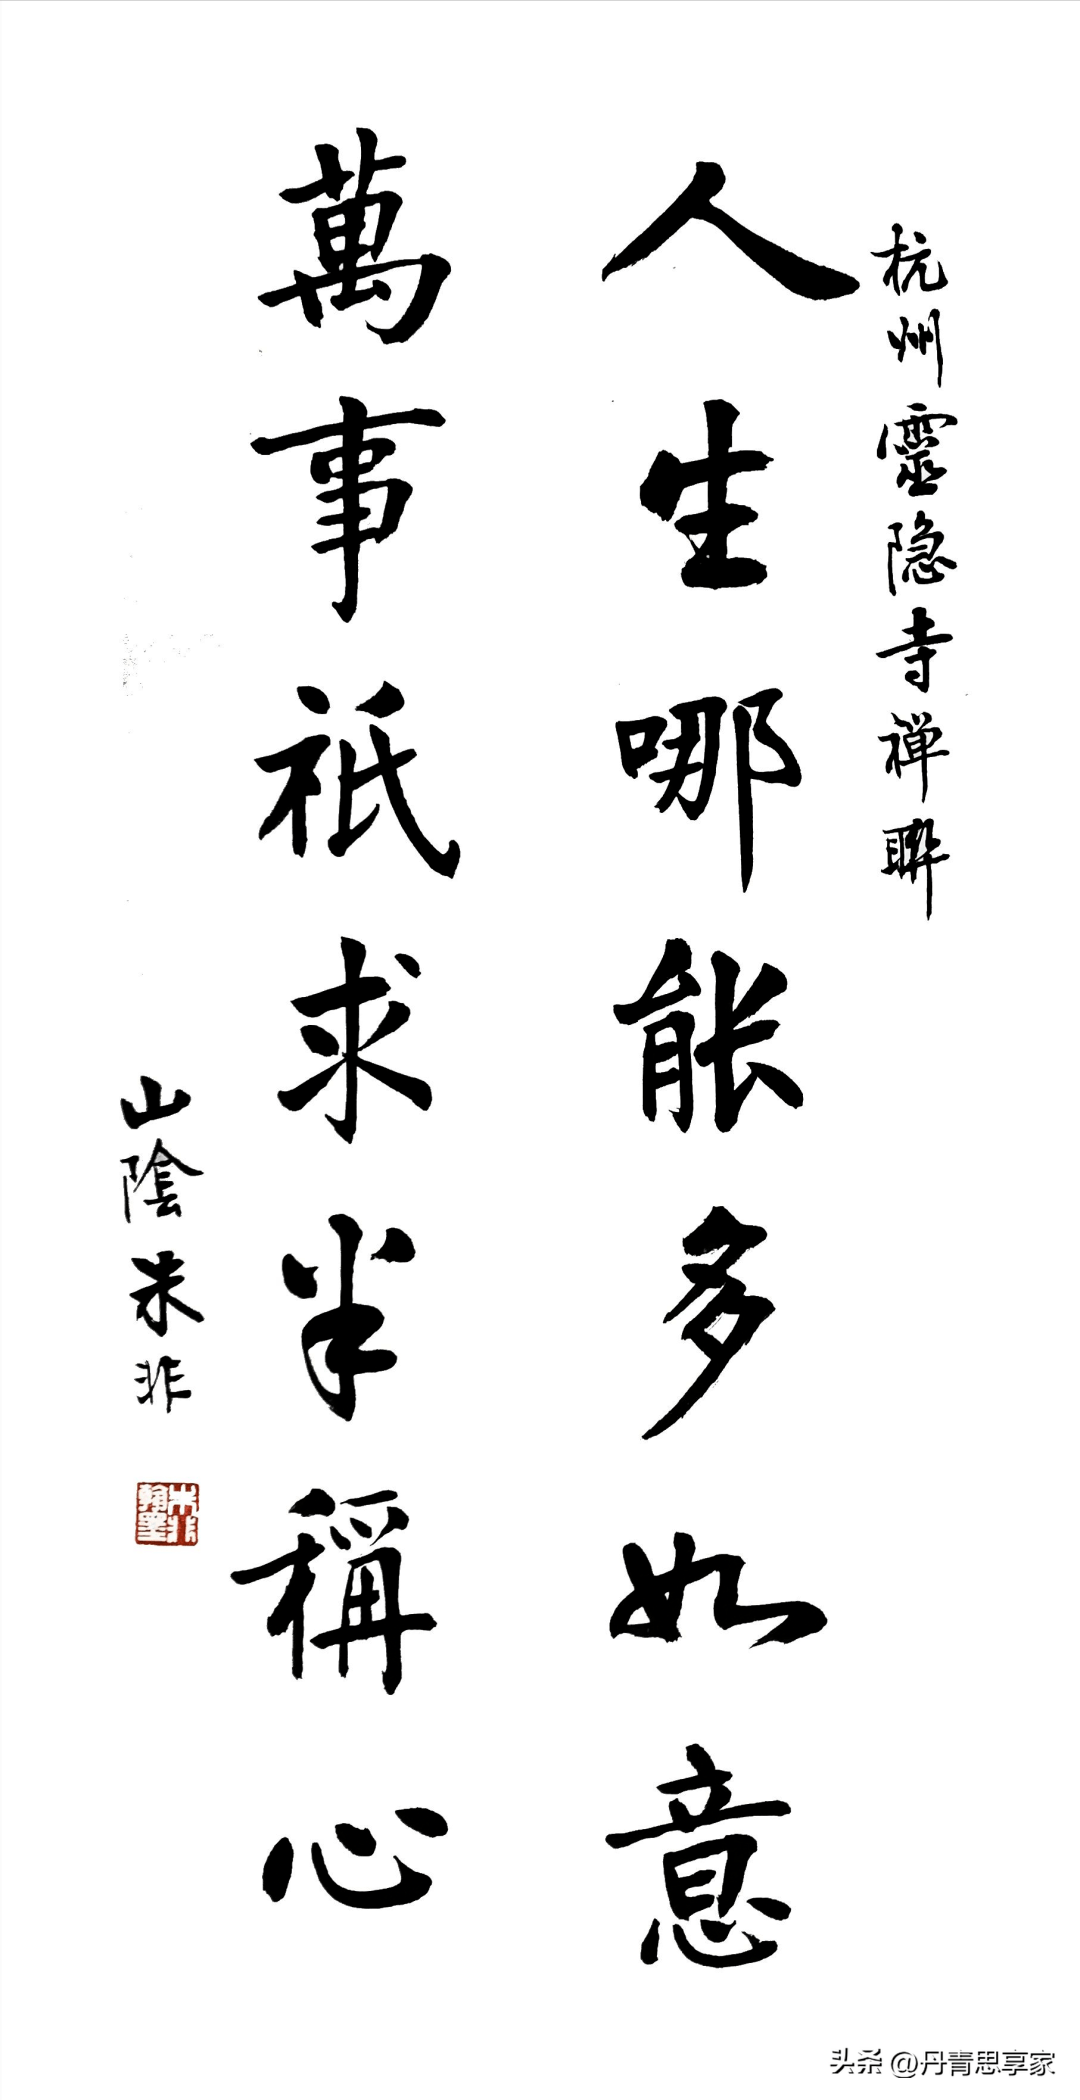 杭州靈隐寺禅聨
人生哪能多如意
萬事祇求半稱心
山陰朱非
朱非
翰墨
头条 @丹青思享家